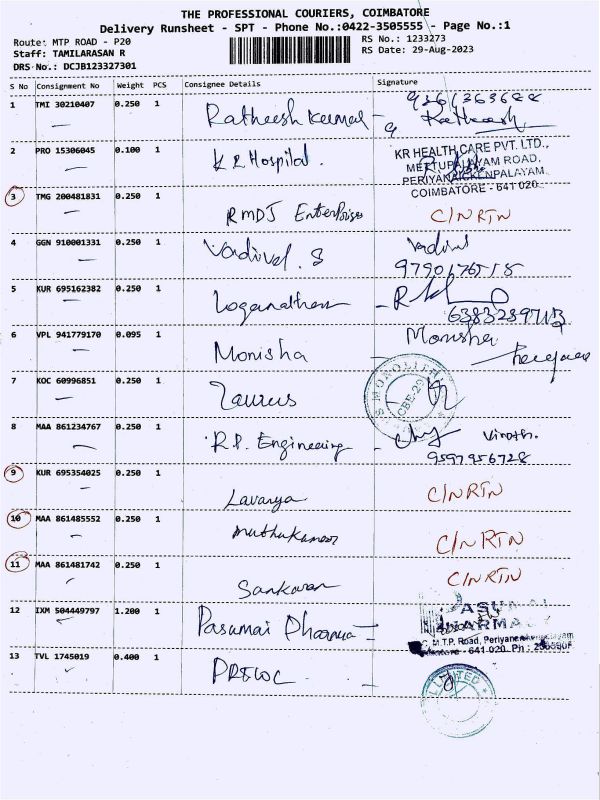 THE PROFESSIONAL COURIERS, COIMBATORE
Delivery Runsheet - SPT - Phone No.:0422-3505555 - Page No.:1
Route: MTP ROAD - P20
RS No.: 1233273
Staff: TAMILARASAN R
RS Date: 29-Aug-2023
DRS No.: DCJB123327301
S No Consignment No Weight PCS Consignee Details Signature
1 TMI 30210407 0.250 1 Ratheesh Kumar
2 PRO 15306045 0.100 1 K R Hospital.
KR HEALTH CARE PVT. LTD.,
METTUPALAYAM ROAD,
PERIYANAICKENPALAYAM
COIMBATORE - 641 020
3 TMG 200481831 0.250 1 RMDJ Enterprises C/N RTN
4 GGN 910001331 0.250 1 Vadivel. S
9790176515
5 KUR 695162382 0.250 1 Loganathan
6383289713
6 VPL 941779170 0.095 1 Monisha Monisha
7 KOC 60996851 0.250 1 Taurus
8 MAA 861234767 0.250 1 R.P. Engineering Vinoth.
9597956728
9 KUR 695354025 0.250 1 Lavanya C/N RTN
10 MAA 861485552 0.250 1 Muthukumar C/N RTN
11 MAA 861481742 0.250 1 Sankaran C/N RTN
12 IXM 504449797 1.200 1 Pasumai Pharma
M.T.P. Road,
641 020. Ph :
13 TVL 1745019 0.400 1
LIMITED